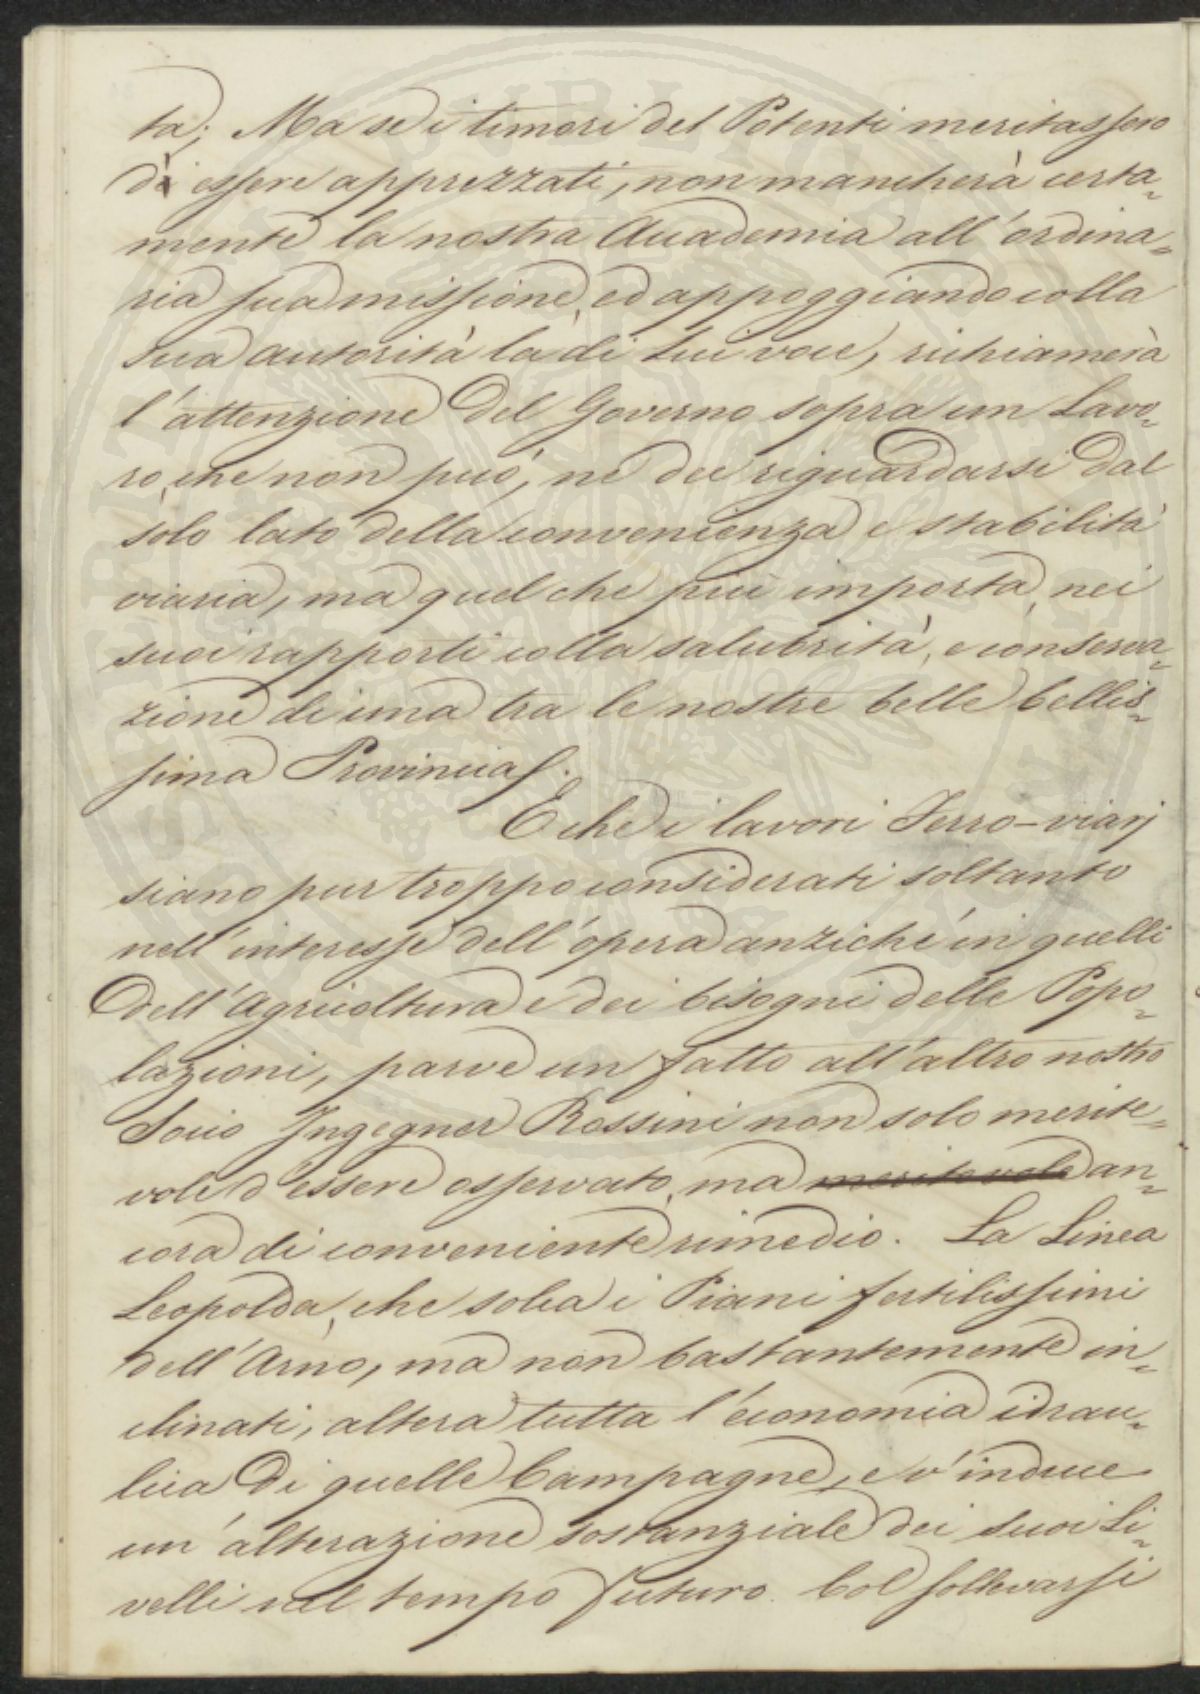 ta; Ma se i timori del Potenti meritassero
di essere apprezzati, non mancherà certa=
mente la nostra Accademia all'ordina=
ria sua missione, ed appoggiando colla
sua autorità la di Lui voce, richiamerà
l'attenzione del Governo sopra un Lavo=
ro, che non può, ne dee riguardarsi dal
solo lato della convenienza e stabilità
viaria, ma quel che più importa, nei
suoi rapporti colla salubrità, e conserva=
zione di una tra le nostre belle bellis=
sima Provincia.
E che i lavori Ferro-viarj
siano pur troppo considerati soltanto
nell'interesse dell'opera anziché in quelli
dell'Agricoltura e dei bisogni delle Popo=
lazioni, parve un fatto all'altro nostro
Socio Ingegner Rossini non solo merite=
vole d'essere osservato, ma meritevole an=
cora di conveniente rimedio. La Linea
Leopolda, che solca i Piani fertilissimi
dell'Arno, ma non bastantemente in=
clinati, altera tutta l'economia idrau=
lica di quelle Campagne, e v'induce
un'alterazione sostanziale dei suoi Li=
velli nel tempo futuro. Col sollevarsi